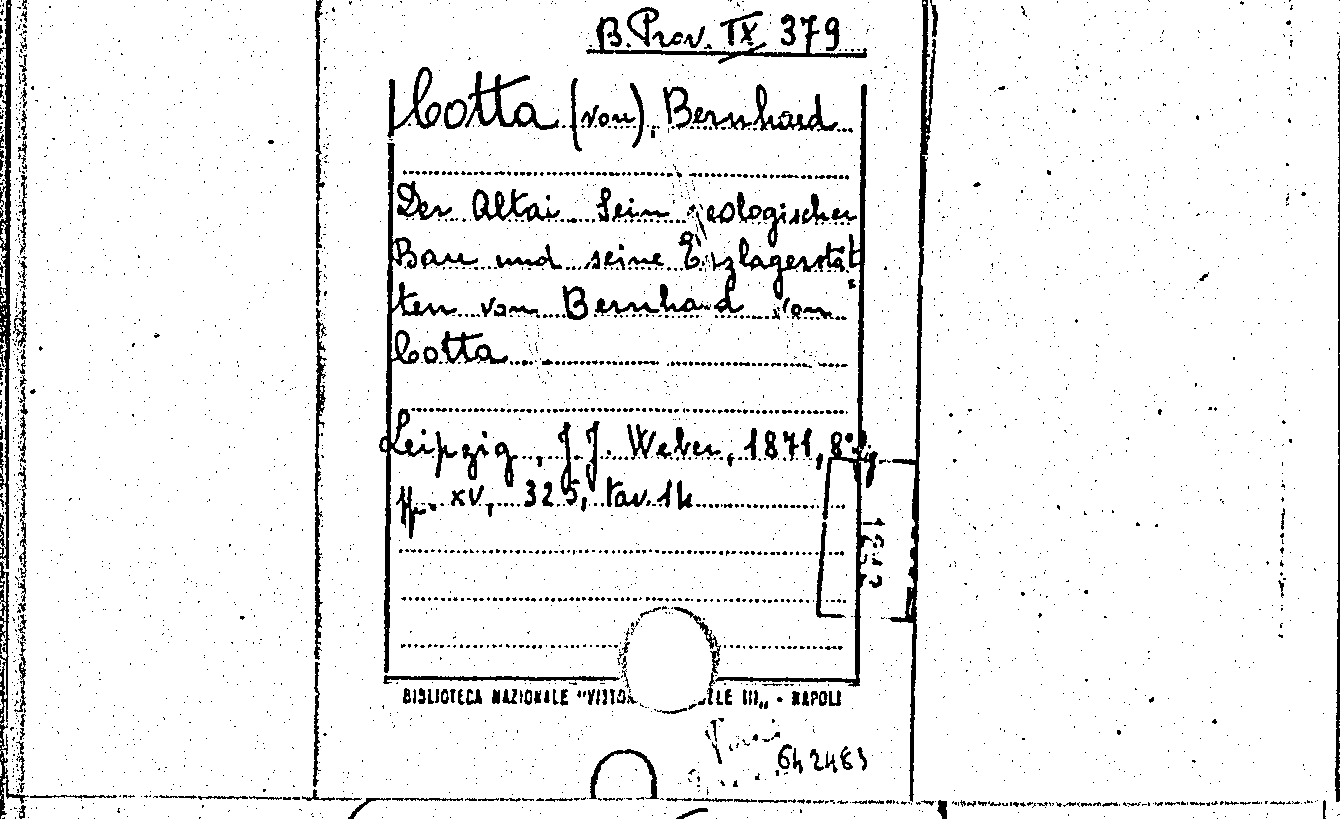 B. Prov. IX 379
Cotta (von), Bernhard
Der Altai. Sein geologischer
Bau und seine Erzlagerstät
ten von Bernhard von
Cotta
Leipzig, J.J. Weber, 1871, 8°
pp. XV, 325, tav. 14
BIBLIOTECA NAZIONALE "VITTOR ELE III" - NAPOLI